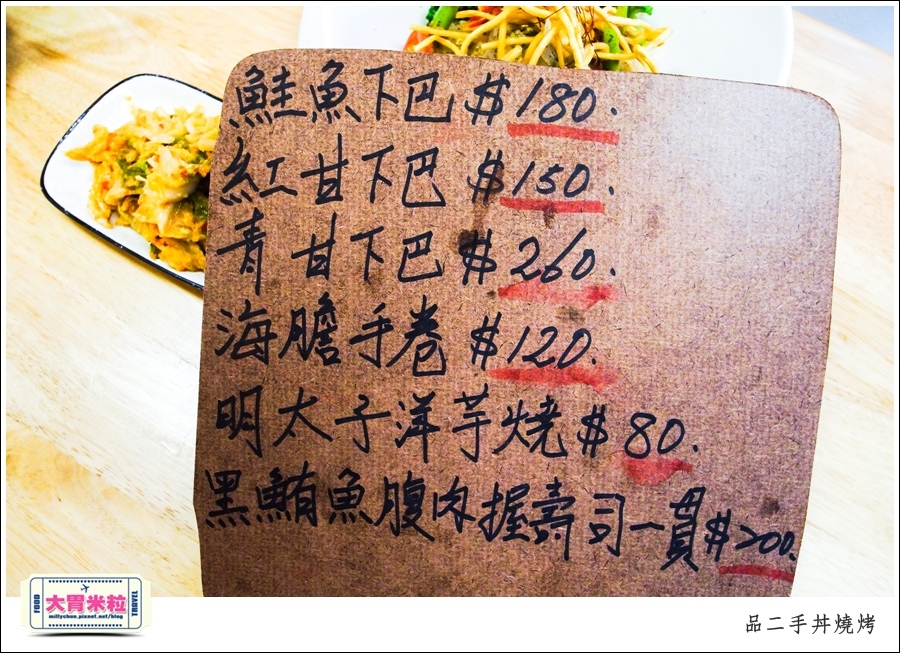 鮭魚下巴 $180.
紅甘下巴 $150.
青甘下巴 $260.
海膽手卷 $120.
明太子洋芋燒 $80.
黑鮪魚腹肉握壽司一貫 $200.
FOOD
大胃米粒
TRAVEL
millychun.pixnet.net/blog
品二手丼燒烤